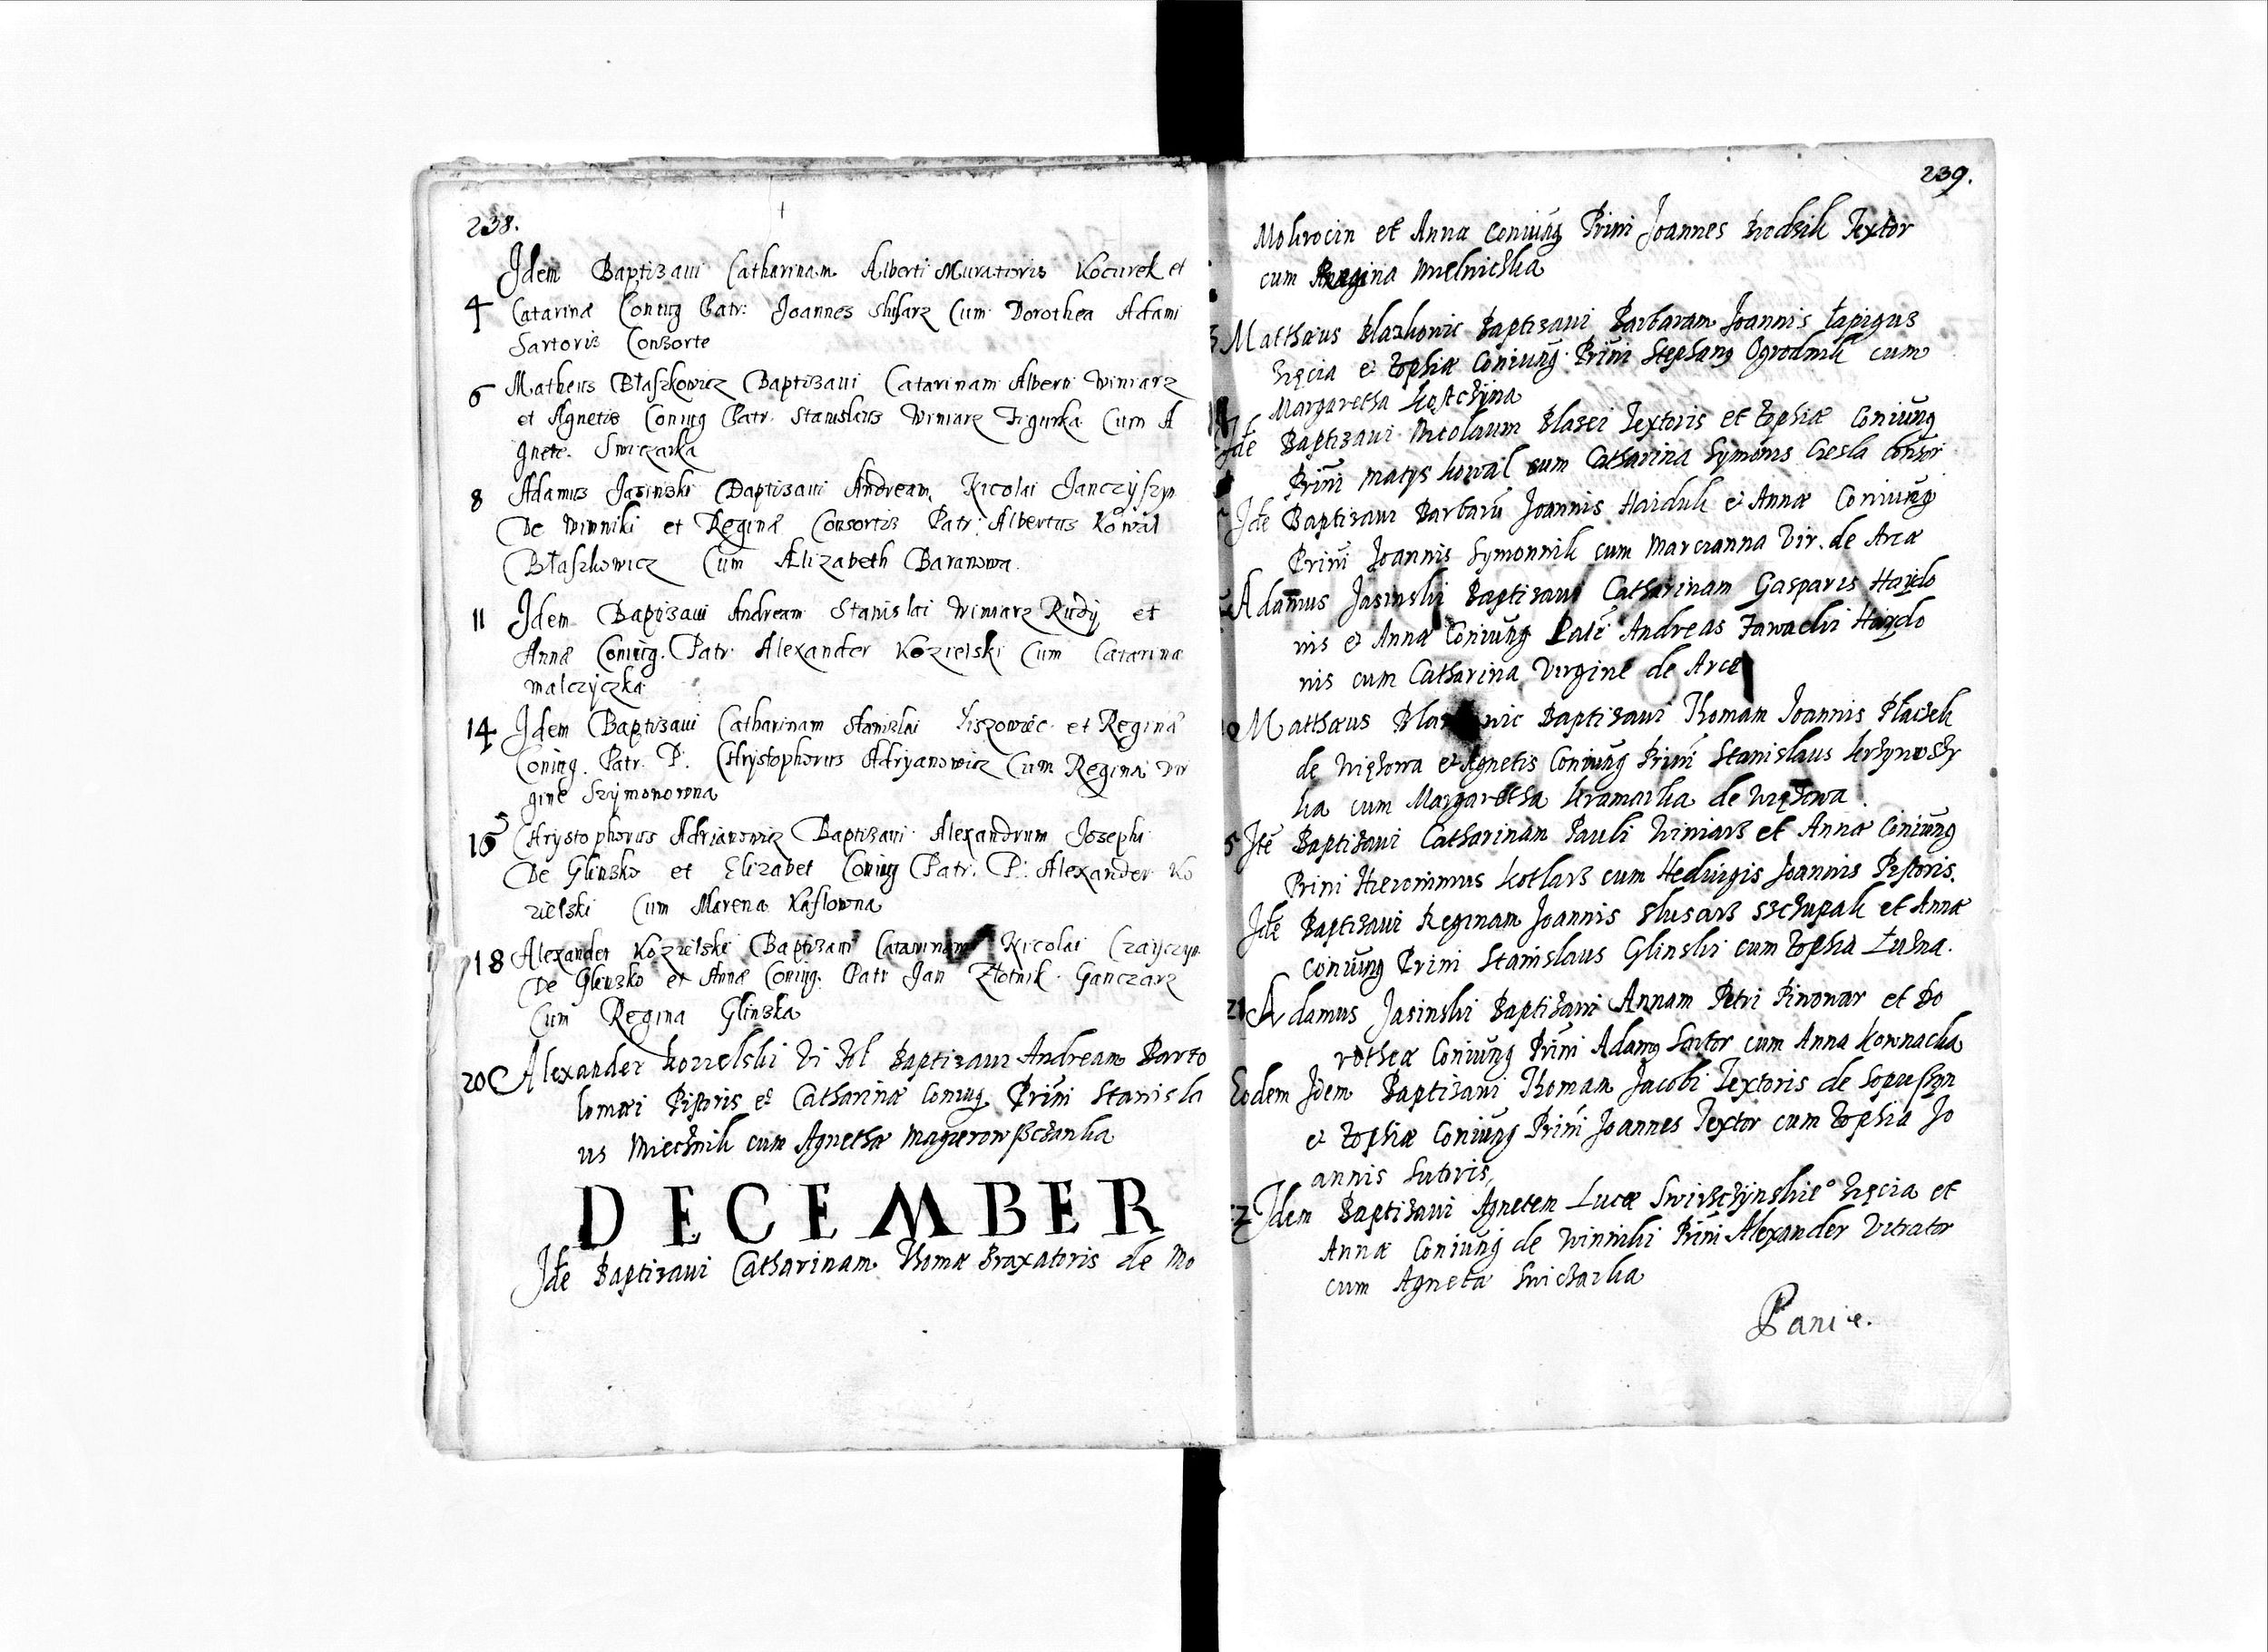 238.
Idem Baptizavi Catharinam Alberti Muratoris Kocurek et
4 Catarinæ Coniug Patr: Joannes Slusarz Cum Dorothea Adami
Sartoris Consorte
6 Matheus Błaszkowicz Baptizavi Catarinam Alberti Winiarz
et Agnetis Coniug Patr. Stanislaus Winiarz Figurka Cum A
gnete. Swiczarka
8 Adamus Jasinski Baptizavi Andream Nicolai Janczyszyn
De Winniki et Reginæ Consortis Patr: Albertus Kowal
Błaszkowicz Cum Ælizabeth Baranowa.
11 Idem Baptizavi Andream Stanislai Winiarz Rudy et
Annæ Coniug. Patr. Alexander Kozielski Cum Catarina
Malczyczka
14 Idem Baptizavi Catharinam Stanislai et Reginæ
Coniug. Patr. P. Chrystophorus Adryanowicz Cum Regina Vir
gine Szymonowna
16 Chrystophorus Adrianowicz Baptizavi Alexandrum Josephi
De Glinsko et Elizabet Coniug Patr. P. Alexander Ko
zielski Cum Marena Kaslowna
18 Alexander Kozielski Baptizavi Catarinam Nicolai
De Glinsko et Annæ Coniug. Patr Jan Złotnik Ganczarz
Cum Regina Glinska
20 Alexander Kozielski Baptizavi Andream Barto
lomæi Pistoris et Catharinæ Coniug Prini Stanisla
us Miecznik cum Agnetha
DECEMBER
Ide Baptizavi Catharinam Thomæ Braxatoris de Mo
239.
Mokrocin et Annæ Coniung Prini Joannes Textor
cum Regina Mielniczka
Matthæus Blazkonic Baptizavi Barbaram Joannis Łapigus
Zięcia et Zophiæ Coniung Prini Stephang Ogrodnik cum
Margaretha
Ide Baptizavi Nicolaum Blasei Textoris et Zophiæ Coniung
Prini Matys kowal cum Catharina Symonis Consor
Ide Baptizavi Barbarū Joannis Haiduk et Annæ Coniung
Prini Joannis Symonnik cum Marczanna Vir. de Arce
Adamus Jasinski Baptizavi Catharinam Gasparis Haydo
nis et Annæ Coniung Andreas Zawacki Haydo
nis cum Catharina Virgine de Arce
Matthæus Baptizavi Thomam Joannis Płaczek
de et Agnetis Coniung Prini Stanislaus
ka cum Margaretha kramarka de
5 Ite Baptizavi Catharinam Pauli Winiarz et Annæ Coniung
Prini Hieronimus kotlarz cum Hedwigis Joannis Pistoris.
Ide Baptizavi Reginam Joannis Slusarz Szczupak et Annæ
Coniung Prini Stanislaus Glinski cum Zophia Łuzna.
21 Adamus Jasinski Baptizavi Annam Petri Piwowar et Do
rotheæ Coniung Prini Adamg Sartor cum Anna kownacka
Eodem Idem Baptizavi Thomam Jacobi Textoris de Sopuszyn
et Zophiæ Coniung Prini Joannes Textor cum Zophia Jo
annis Sutoris,
Idem Baptizavi Agnetem Lucæ Zięcia et
Annæ Coniung de Winniki Prini Alexander Vitrator
cum Agneta Swiczarka